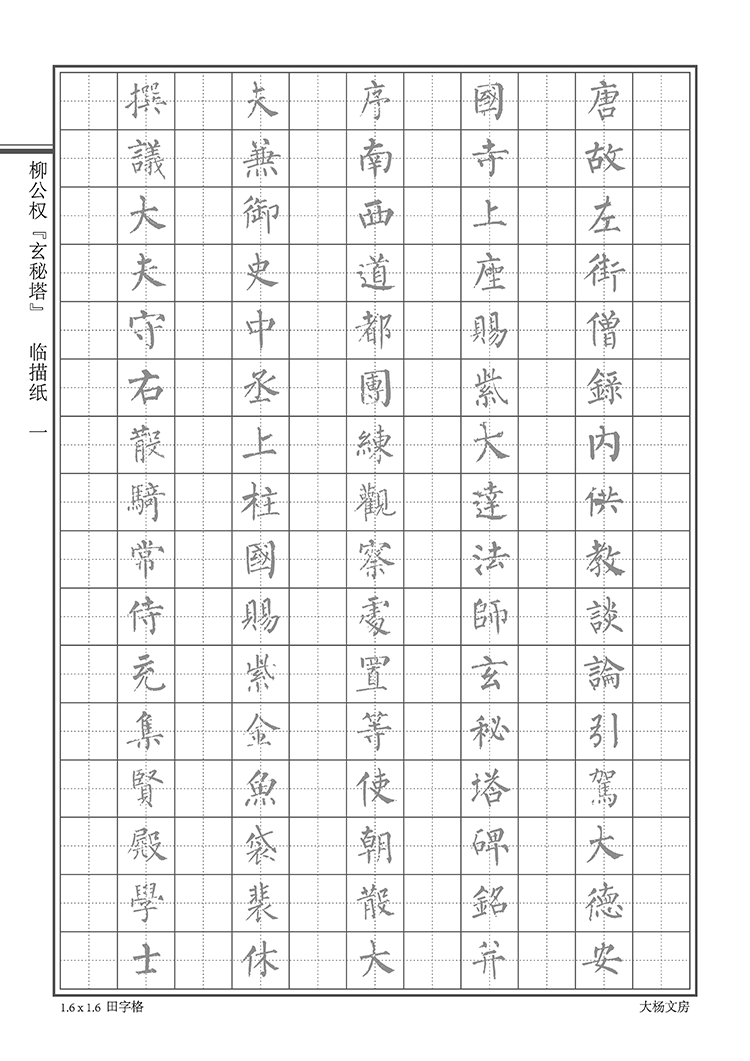 唐故左街僧錄內供教談論引駕大德安
國寺上座賜紫大達法師玄秘塔碑銘并
序南西道都團練觀察處置等使朝散大
夫兼御史中丞上柱國賜紫金魚袋裴休
撰議大夫守右散騎常侍充集賢殿學士
柳公权『玄秘塔』 临描纸 一
1.6 x 1.6 田字格
大杨文房